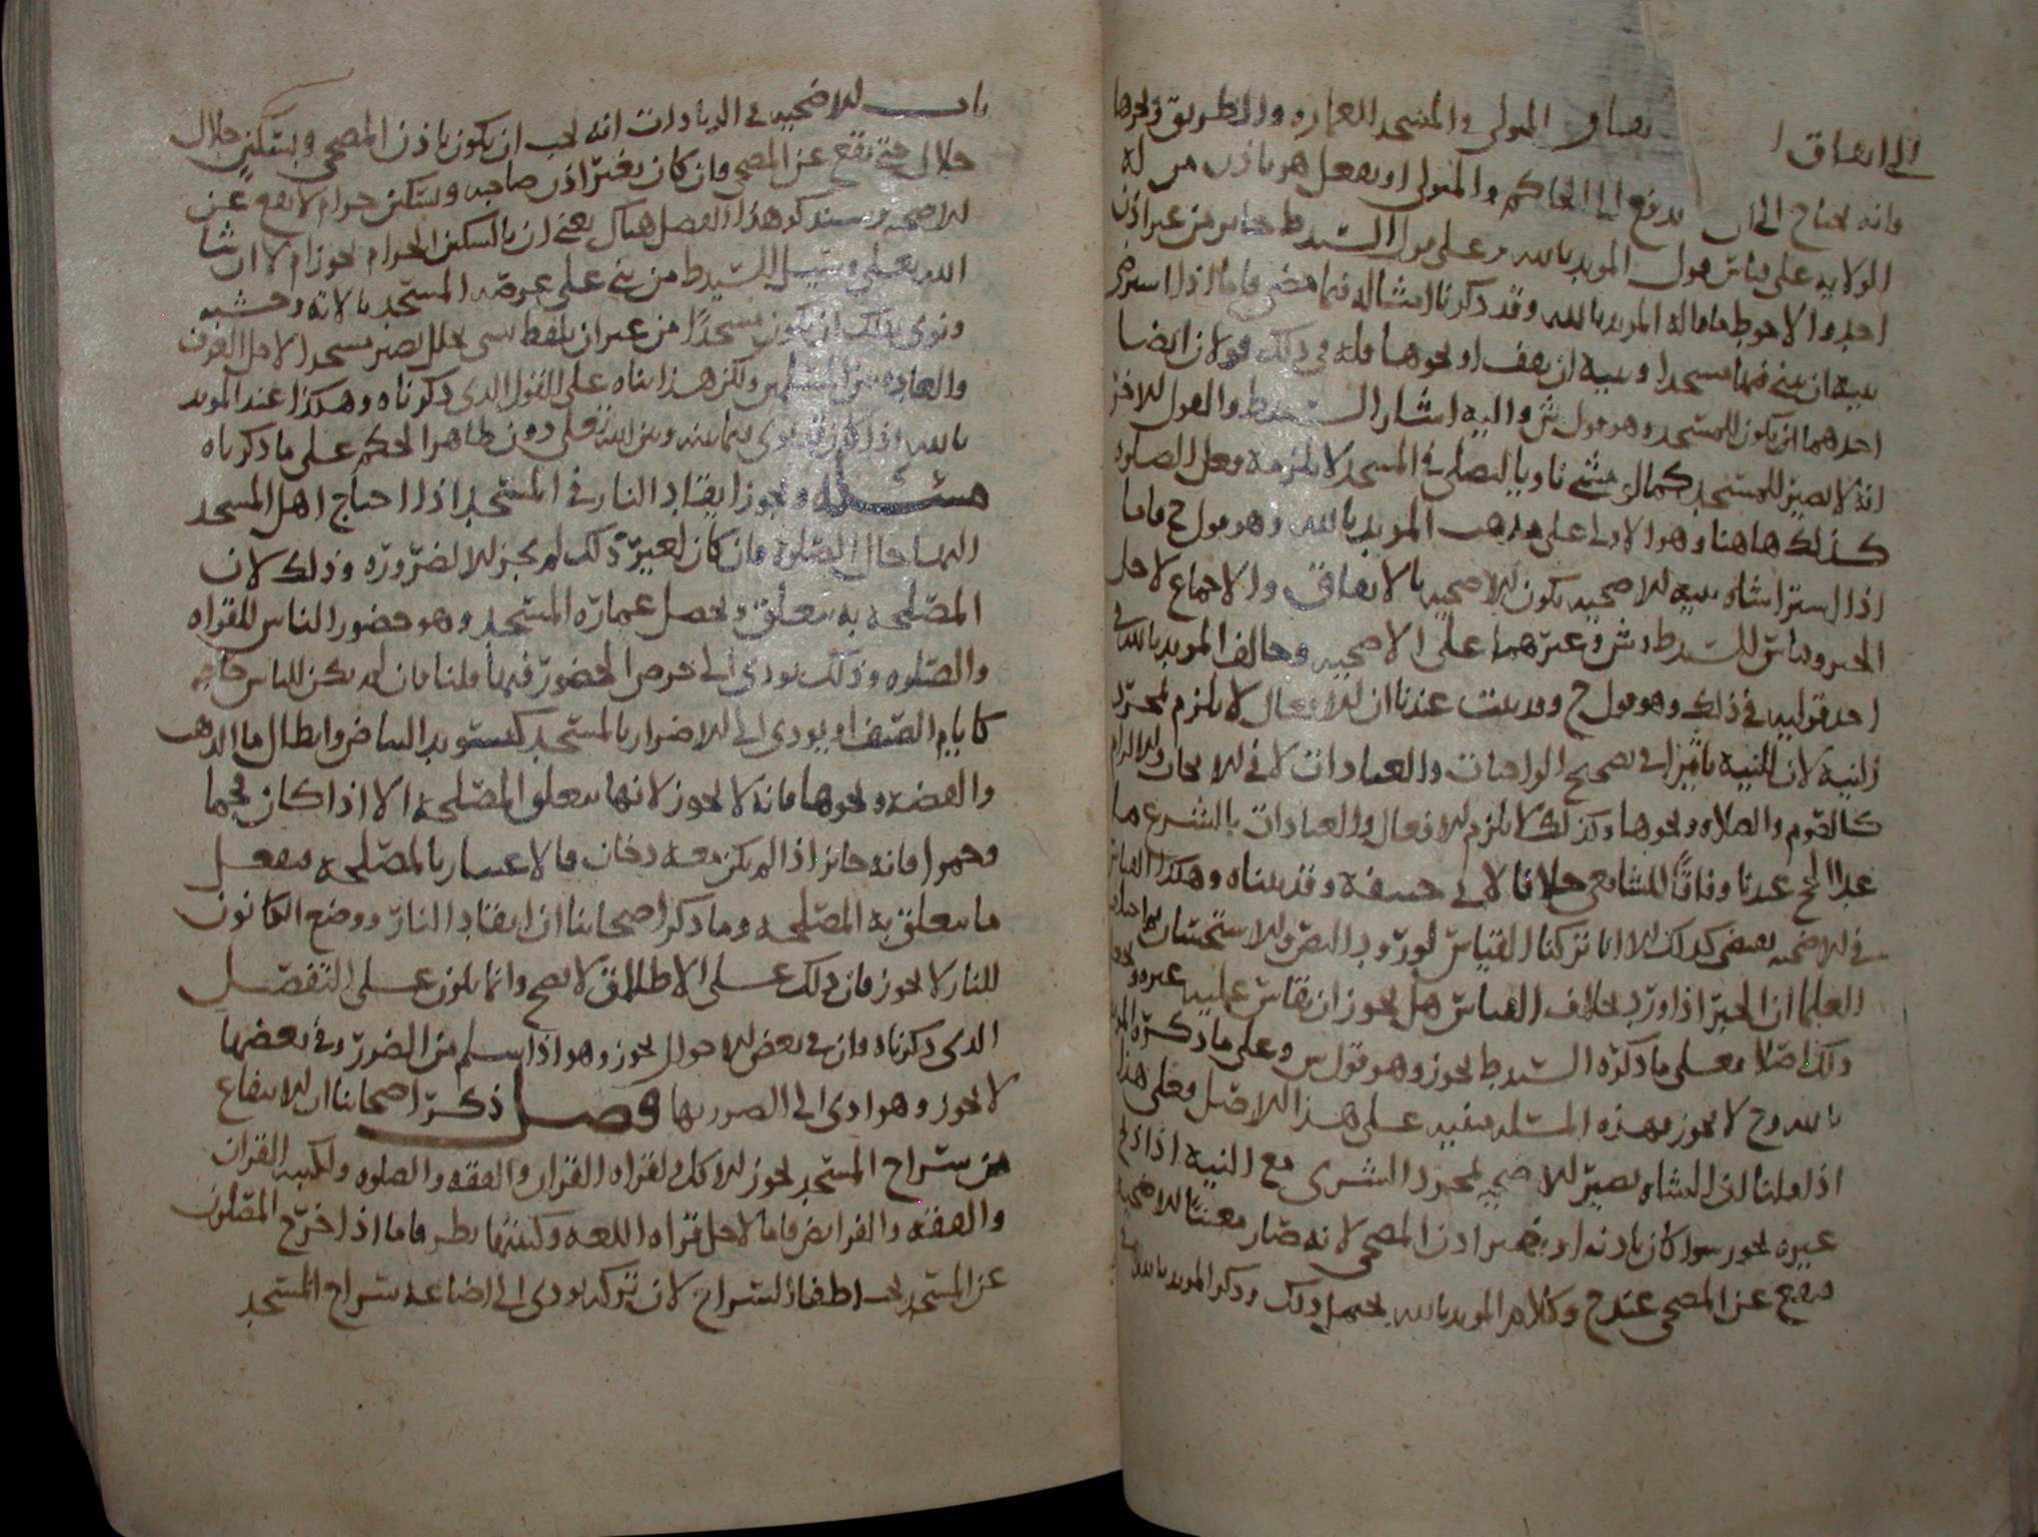 الى انفاق المولى والمسجد للعماره والطريق ونحوها
وانه يحتاج الى ان يدفع الى الحاكم والمتولى او يفعل هو باذن من له
الولايه على قياس قول المويد بالله وعلى قول السيد ط جايز من غير اذن
احد والاحوط ما قاله المويد بالله وقد ذكرنا امثاله فيما مضى فاما اذا اشترى
بنية ان يبني فيها مسجدا وبنية ان يقف او نحوها فله في ذلك قولان ايضا
احدهما ان يكون للمسجد وهو قول ش واليه اشار السيد ط والقول الاخر
انه لا يصير للمسجد كمالو مشى ناويا ليصلي في المسجد لا يلزمه فعل الصلوه
كذلك هاهنا وهو الاولى على مذهب المويد بالله وهو قول ح فاما
اذا اشترا شاه بنية للاضحيه يكون للاضحيه بالاتفاق والاجماع لاجل
الخبر وقاس السيد ط وش وغيرهما على الاضحيه وخالف المويد بالله في
احد قوليه في ذلك وهو قول ح وقد بينت عندنا ان الافعال لا يلزم لمجرد
النيه لان للنيه تاثيرا في تصحيح الواجبات والعبادات لا في الايجاب والالزام
كالصوم والصلاه ونحوها وكذلك لا يلزم الافعال والعبادات بالشرع ما
عدا الحج عندنا وفاقا للشافعي خلافا لابي حنيفه وقد بيناه وهكذا القياس
في الاضحيه يقضي كذلك الا انا تركنا القياس لورود النص وللاستحسان
العلما ان الخبر اذا ورد بخلاف القياس هل يجوز ان يقاس عليه غيره
ذلك اصلا فعلى ما ذكره السيد ط يجوز وهو قول س وعلى ما ذكره المويد
بالله وح لا يجوز فهذه المسئله مبنيه على هذا الاصل فعلى هذا
اذا قلنا ان الشاه يصير للاضحيه لمجرد الشرى مع النيه اذا ذبح
غيره يجوز سوا كان باذنه او بغير اذن المضحي لانه صار معينا للاضحيه
فيقع عن المضحي عند ح وكلام المويد بالله يحتمل ذلك وذكر المويد بالله في
باب الاضحيه في الزيادات انه يجب ان يكون باذن المضحي وبسكين حلال
حلال حتى يقع عن المضحي فان كان بغير اذن صاحبه وبسكين حرام لا يقع عن
الاضحيه وسنذكر هذا الفصل هناك يعني ان بالسكين الحرام يجوز ام لا ان شا
الله تعالى وسئل السيد ط من بنى على عرصه المسجد بالاته وخشبه
ونوى بذلك ان يكون مسجدا من غير ان يلفظ بشي هل يصير مسجدا لاجل العرف
والعاده بين المسلمين ولكن هذا بناه على القول الذي ذكرناه وهكذا عند المويد
بالله اذا كان قد نوى فيما بينه وبين الله تعالى دون ظاهر الحكم على ما ذكرناه
مسئله ويجوز ايقاد النار في المسجد اذا احتاج اهل المسجد
اليها حال الصلوه فان كان لغير ذلك لم يجز الا لضروره وذلك لان
المصلحه به يتعلق ويحصل عماره المسجد وهو حضور الناس للقراه
والصلوه وذلك يودي الى حرص الحضور فيها قلنا فان لم يكن للناس حاجه
كايام الصيف او يودي الى الاضرار بالمسجد كتسويد البياض وابطال ما الذهب
والفضه ونحوها فانه لا يجوز لانها يتعلق المصلحه الا اذا كان فحما
وجمرا فانه جايز اذا لم يكن معه دخان فالاعتبار بالمصلحه فيفعل
ما يتعلق به المصلحه وما ذكر اصحابنا ان ايقاد النار ووضع الكانون
للنار لا يجوز فان ذلك على الاطلاق لا يصح وانما يكون على التفصيل
الذي ذكرناه وان في بعض الاحوال يجوز وهو اذا سلم من الضرر وفي بعضها
لا يجوز وهو ادى الى الضرر بها فصل ذكر اصحابنا ان الانتفاع
من سراج المسجد يجوز للاكل ولقراه القران والفقه والصلوه ولكتبه القران
والفقه والفرايض فاما لاجل قراه اللغه وكتبتها نظر فاما اذا خرج المصلون
عن المسجد يجب اطفا السراج لان تركه يودي الى اضاعه سراج المسجد